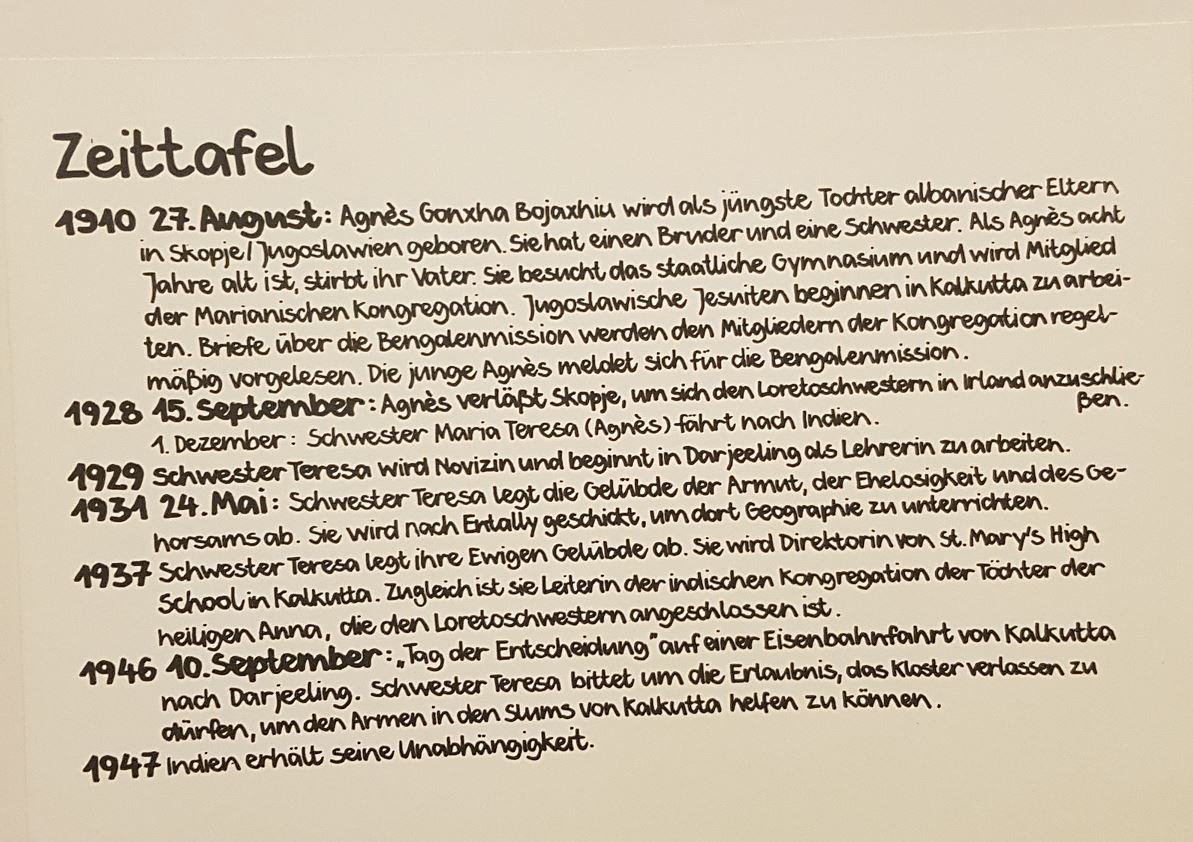 Zeittafel
1910 27. August: Agnès Gonxha Bojaxhiu wird als jüngste Tochter albanischer Eltern
in Skopje/Jugoslawien geboren. Sie hat einen Bruder und eine Schwester. Als Agnès acht
Jahre alt ist, stirbt ihr Vater. Sie besucht das staatliche Gymnasium und wird Mitglied
der Marianischen Kongregation. Jugoslawische Jesuiten beginnen in Kalkutta zu arbei-
ten. Briefe über die Bengalenmission werden den Mitgliedern der Kongregation regel-
mäßig vorgelesen. Die junge Agnès meldet sich für die Bengalenmission.
1928 15. September: Agnès verläßt Skopje, um sich den Loretoschwestern in Irland anzuschlie-
ßen.
1. Dezember: Schwester Maria Teresa (Agnès) fährt nach Indien.
1929 Schwester Teresa wird Novizin und beginnt in Darjeeling als Lehrerin zu arbeiten.
1931 24. Mai: Schwester Teresa legt die Gelübde der Armut, der Ehelosigkeit und des Ge-
horsams ab. Sie wird nach Entally geschickt, um dort Geographie zu unterrichten.
1937 Schwester Teresa legt ihre Ewigen Gelübde ab. Sie wird Direktorin von St. Mary's High
School in Kalkutta. Zugleich ist sie Leiterin der indischen Kongregation der Töchter der
heiligen Anna, die den Loretoschwestern angeschlossen ist.
1946 10. September: „Tag der Entscheidung" auf einer Eisenbahnfahrt von Kalkutta
nach Darjeeling. Schwester Teresa bittet um die Erlaubnis, das Kloster verlassen zu
dürfen, um den Armen in den Slums von Kalkutta helfen zu können.
1947 Indien erhält seine Unabhängigkeit.